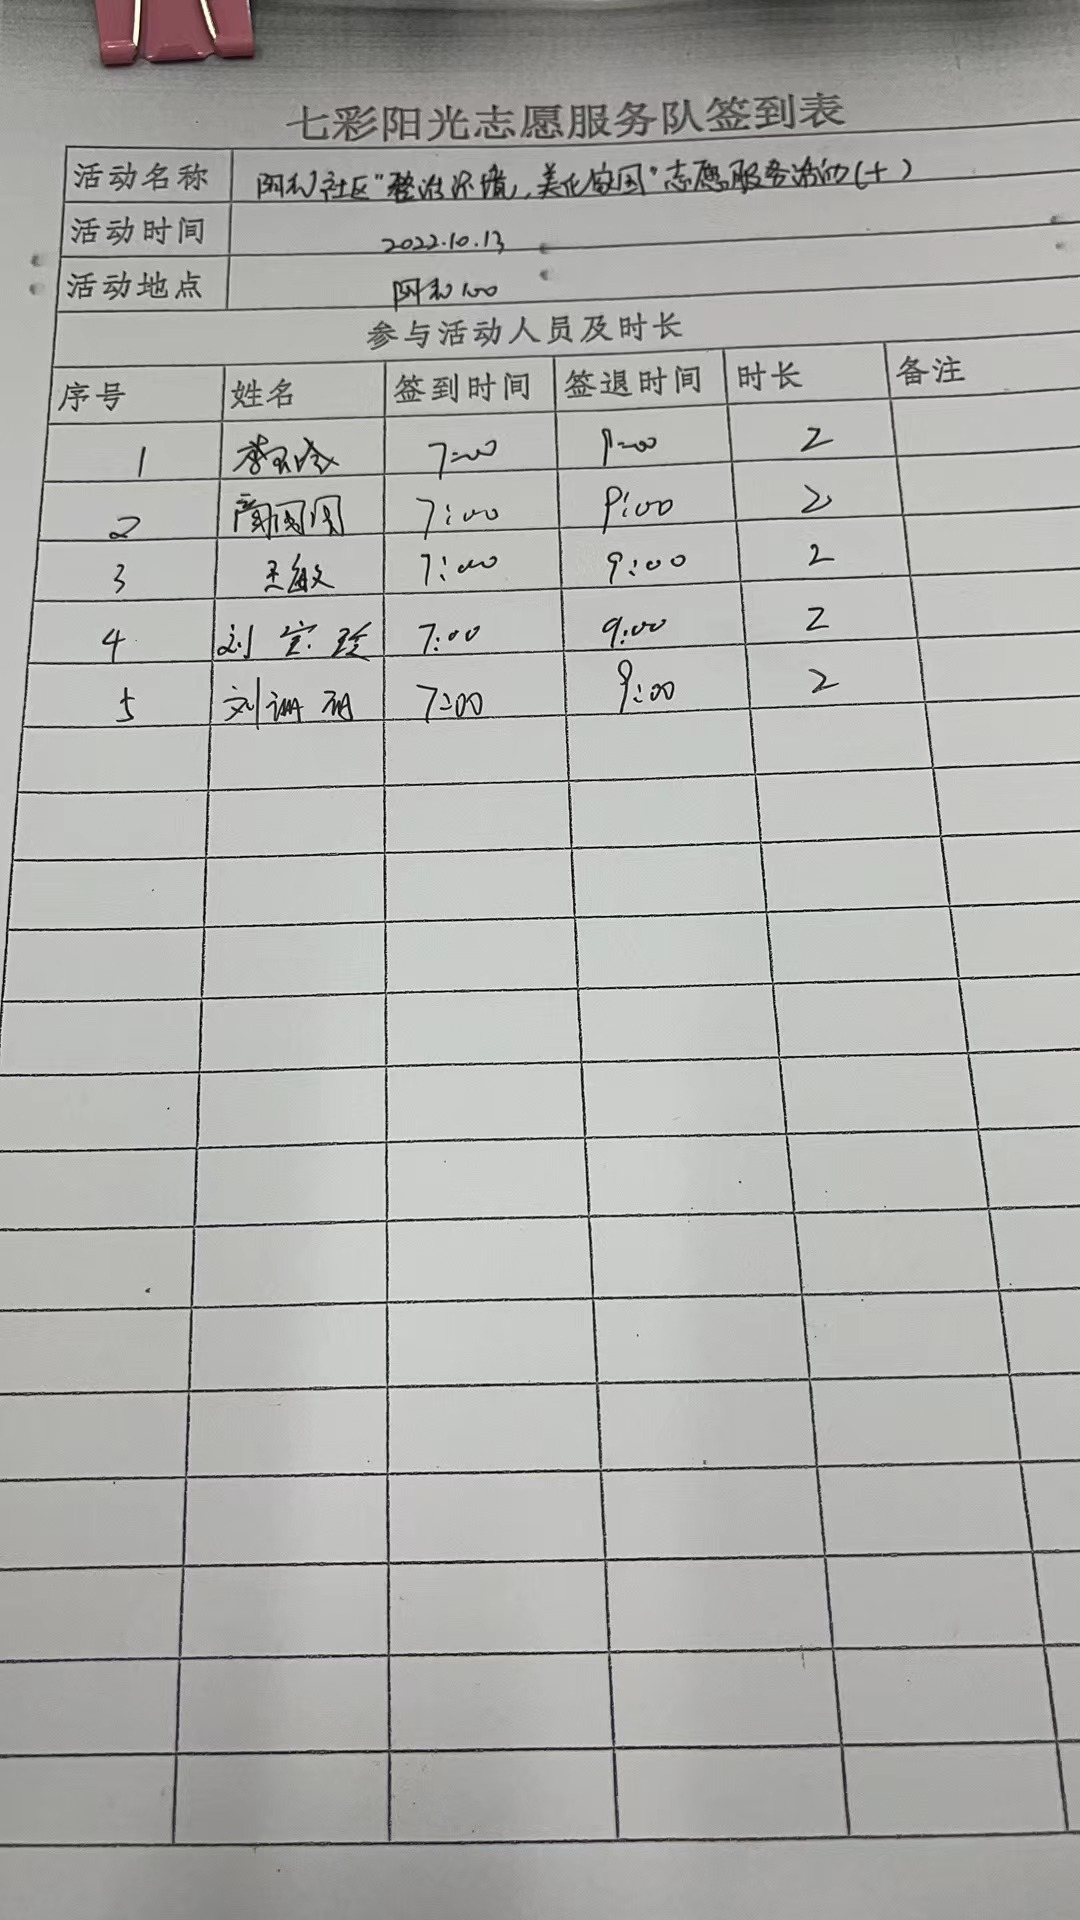 七彩阳光志愿服务队签到表
活动名称 阳和社区"整治环境,美化家园"志愿服务活动(十)
活动时间 2022.10.13
活动地点 阳和100
参与活动人员及时长
序号 姓名 签到时间 签退时间 时长 备注
1 李 7:00 9:00 2
2 7:00 9:00 2
3 王敏 7:00 9:00 2
4 刘宝珍 7:00 9:00 2
5 刘 7:00 9:00 2